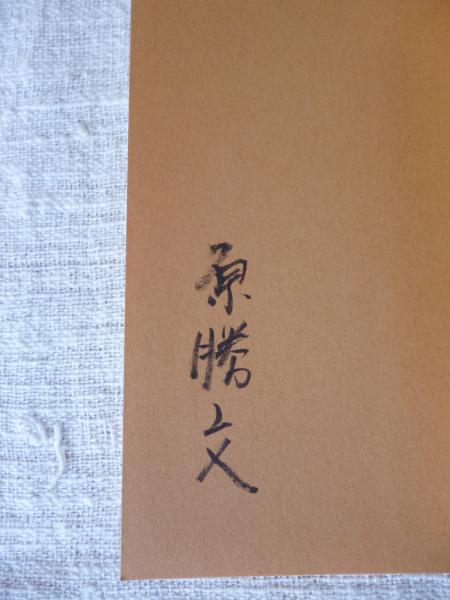 原勝文